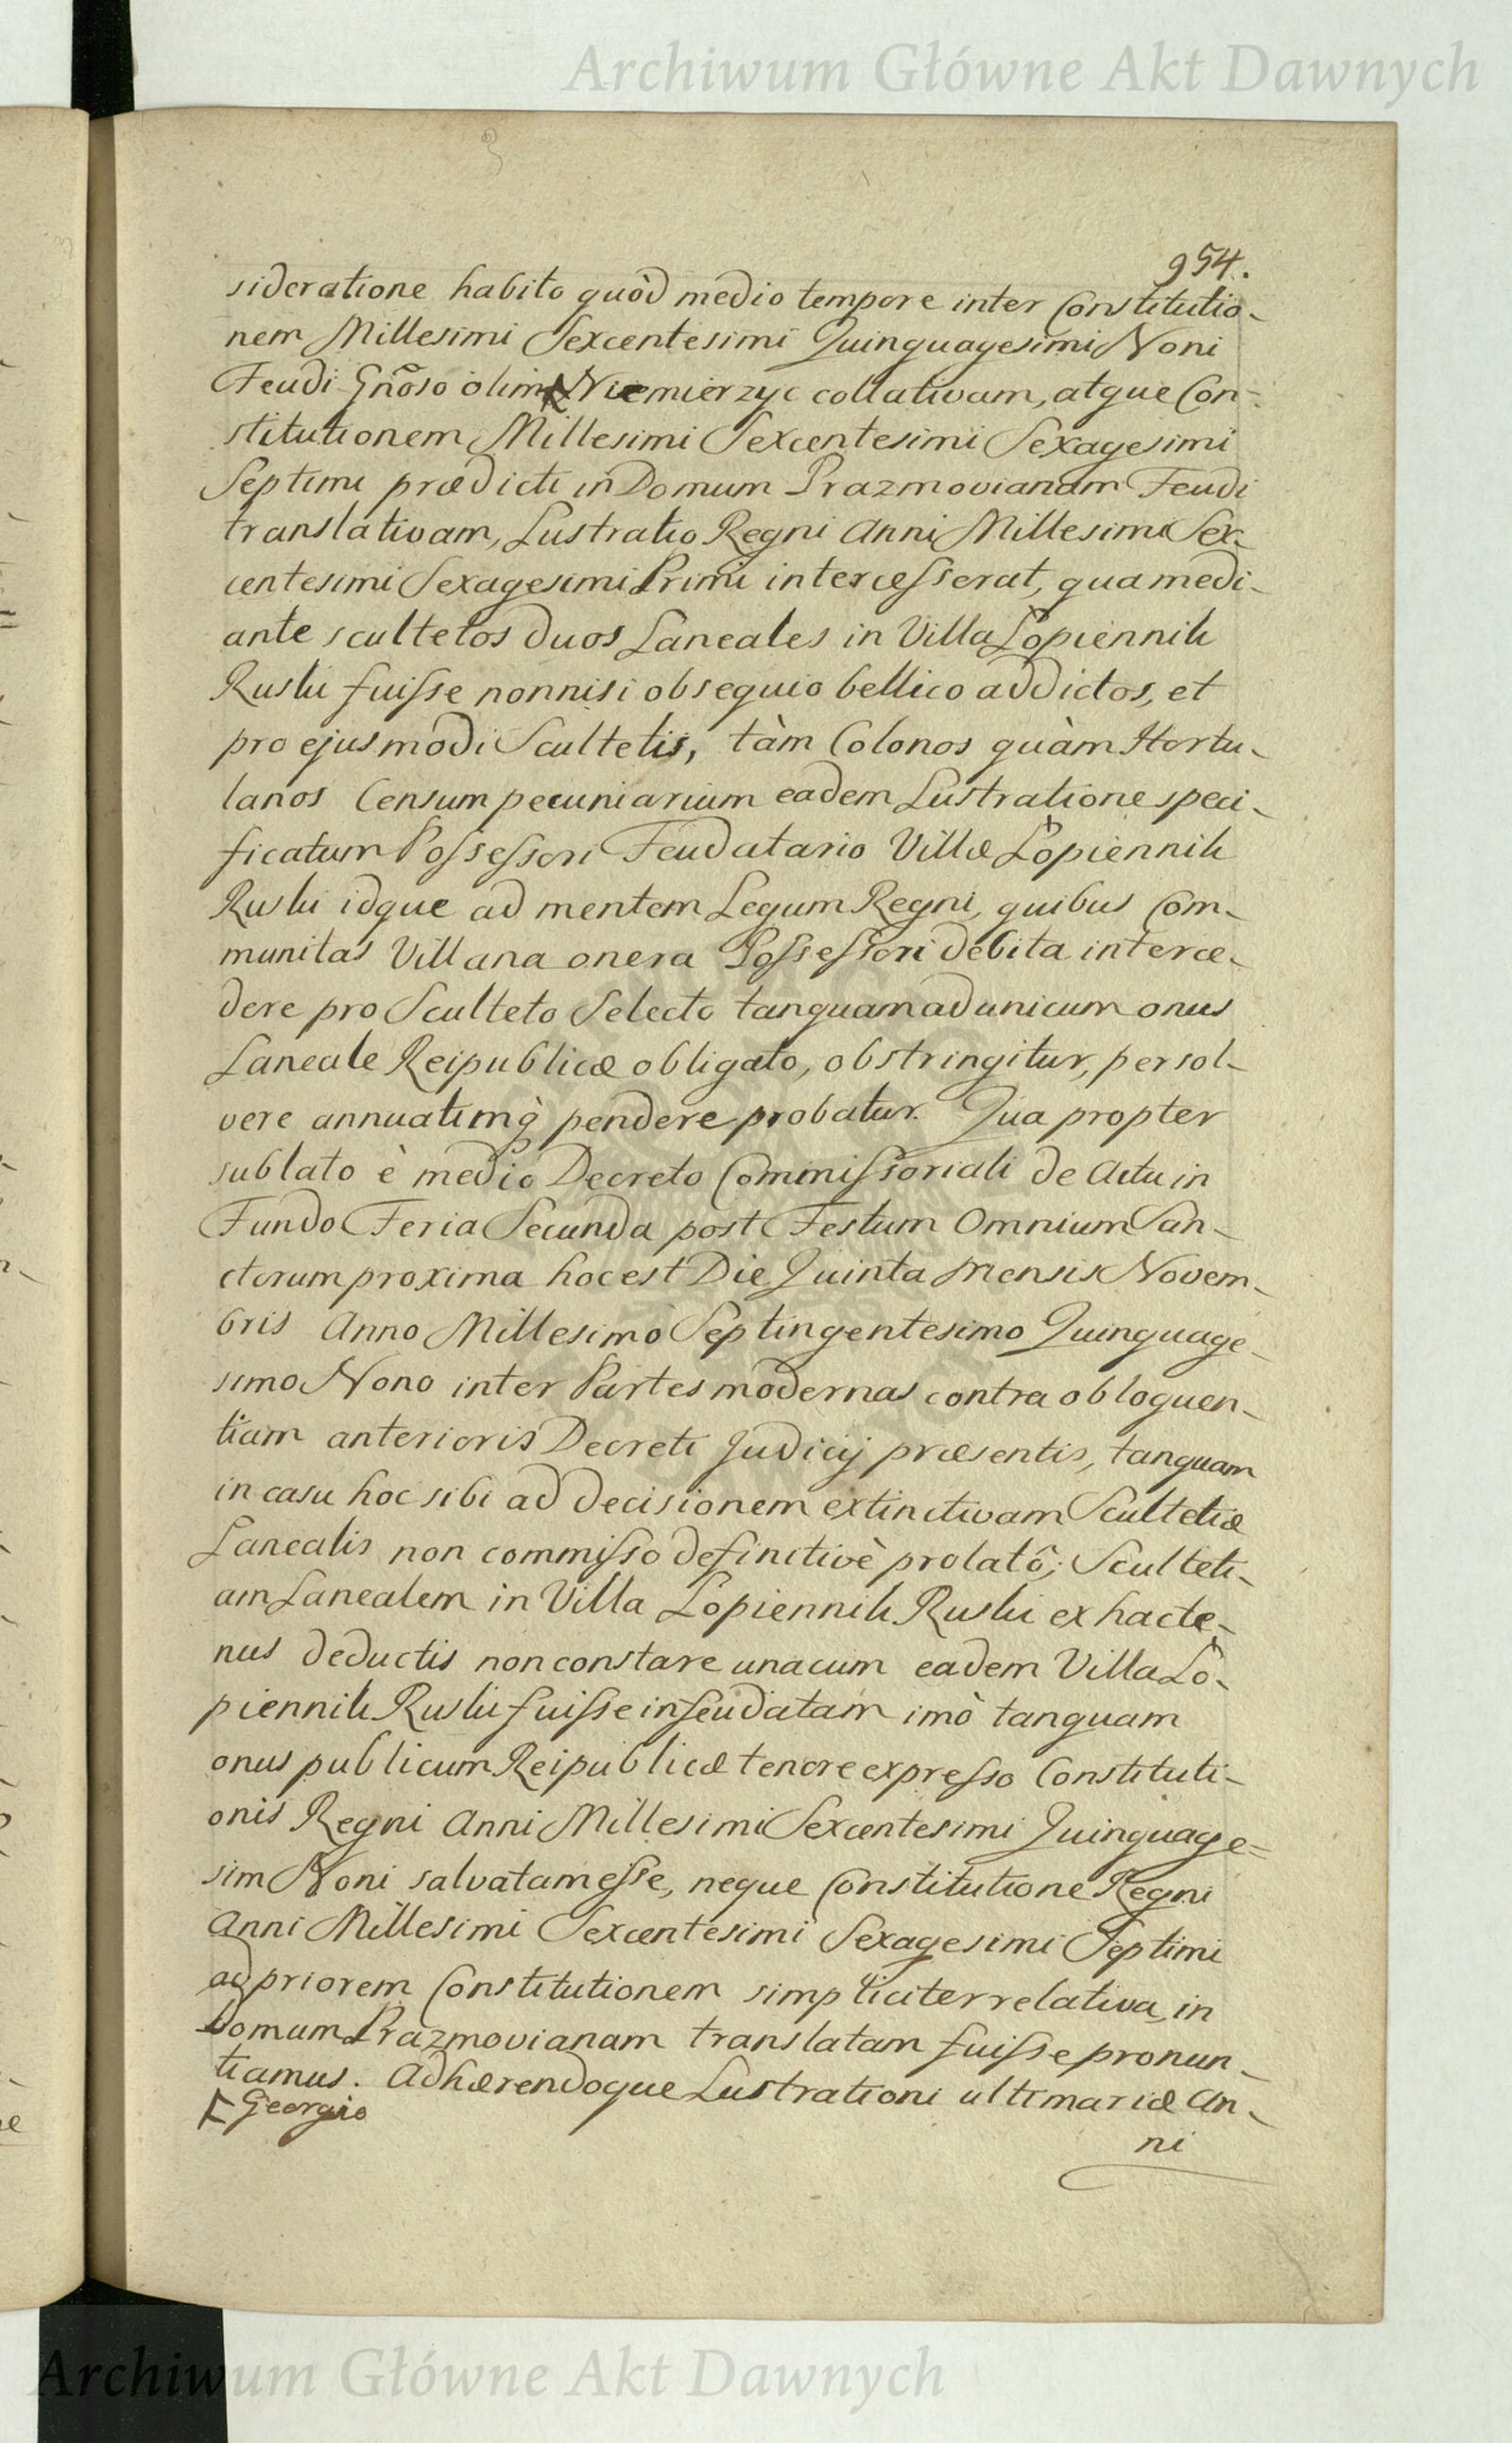 Archiwum Główne Akt Dawnych
954.
sideratione habito quòd medio tempore inter Constitutio-
nem Millesimi Sexcentesimi Quinquagesimi Noni
Feudi Gñoso olim Niemierzyc collativam, atque Con-
stitutionem Millesimi Sexcentesimi Sexagesimi
Septimi prædicti in Domum Prazmovianam Feudi
translativam, Lustratio Regni Anni Millesimi Sex-
centesimi Sexagesimi Primi intercesserat, qua medi-
ante scultetos duos Laneales in Villa Łopiennik
Ruski fuisse nonnisi obsequio bellico addictos, et
pro ejusmodi Scultetis, tàm Colonos quàm Hortu-
lanos Censum pecuniarium eadem Lustratione speci-
ficatum Possessori Feudatario Villæ Łopiennik
Ruski idque ad mentem Legum Regni, quibus Com-
munitas Villana onera Possessori debita interce-
dere pro Sculteto Selecto tanquam ad unicum onus
Laneale Reipublicæ obligato, obstringitur, persol-
vere annuatimq̀ pendere probatur. Qua propter
sublato è medio Decreto Commissoriali de Actu in
Fundo Feria Secunda post Festum Omnium San-
ctorum proxima hoc est Die Quinta Mensis Novem-
bris Anno Millesimo Septingentesimo Quinquage-
simo Nono inter Partes modernas contra obloquen-
tiam anterioris Decreti Judicij præsentis, tanquam
in casu hoc sibi ad decisionem extinctivam Scultetiæ
Lanealis non commisso definitivè prolatô; Sculteti-
am Lanealem in Villa Łopiennik Ruski ex hacte-
nus deductis non constare unacum eadem Villa Ło-
piennik Ruski fuisse infeudatam imò tanquam
onus publicum Reipublicæ tenore expresso Constituti-
onis Regni Anni Millesimi Sexcentesimi Quinquage=
sim Noni salvatam esse, neque Constitutione Regni
Anni Millesimi Sexcentesimi Sexagesimi Septimi
ad priorem Constitutionem simpliciter relativa, in
Domum Prazmovianam translatam fuisse pronun-
tiamus. Adhærendoque Lustrationi ultimariæ An-
Georgio
ni
Archiwum Główne Akt Dawnych